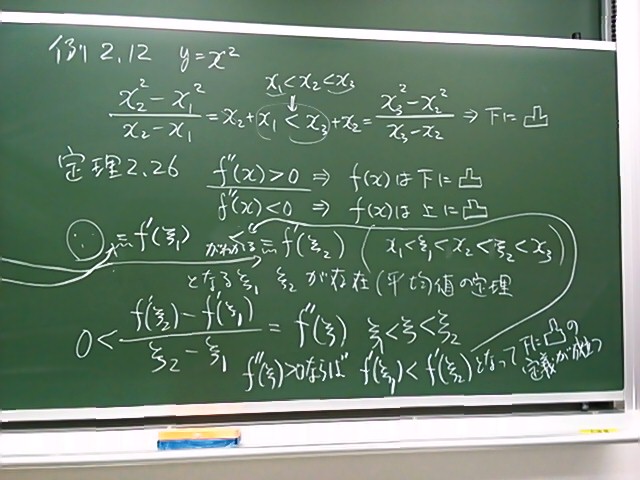 例 2.12 y = x²
x₁ < x₂ < x₃
(x₂² − x₁²)/(x₂ − x₁) = x₂ + x₁ < x₃ + x₂ = (x₃² − x₂²)/(x₃ − x₂) ⇒ 下に凸
定理2.26
f''(x) > 0 ⇒ f(x)は下に凸
f''(x) < 0 ⇒ f(x)は上に凸
∵ = f'(ξ₁) < = f'(ξ₂) (x₁ < ξ₁ < x₂ < ξ₂ < x₃)
となる ξ₁ ξ₂ が存在(平均値の定理
0 < (f'(ξ₂) − f'(ξ₁))/(ξ₂ − ξ₁) = f''(ξ) ξ₁ < ξ < ξ₂
f''(ξ) > 0ならば f'(ξ₁) < f'(ξ₂) となって 下に凸の
定義が成立つ